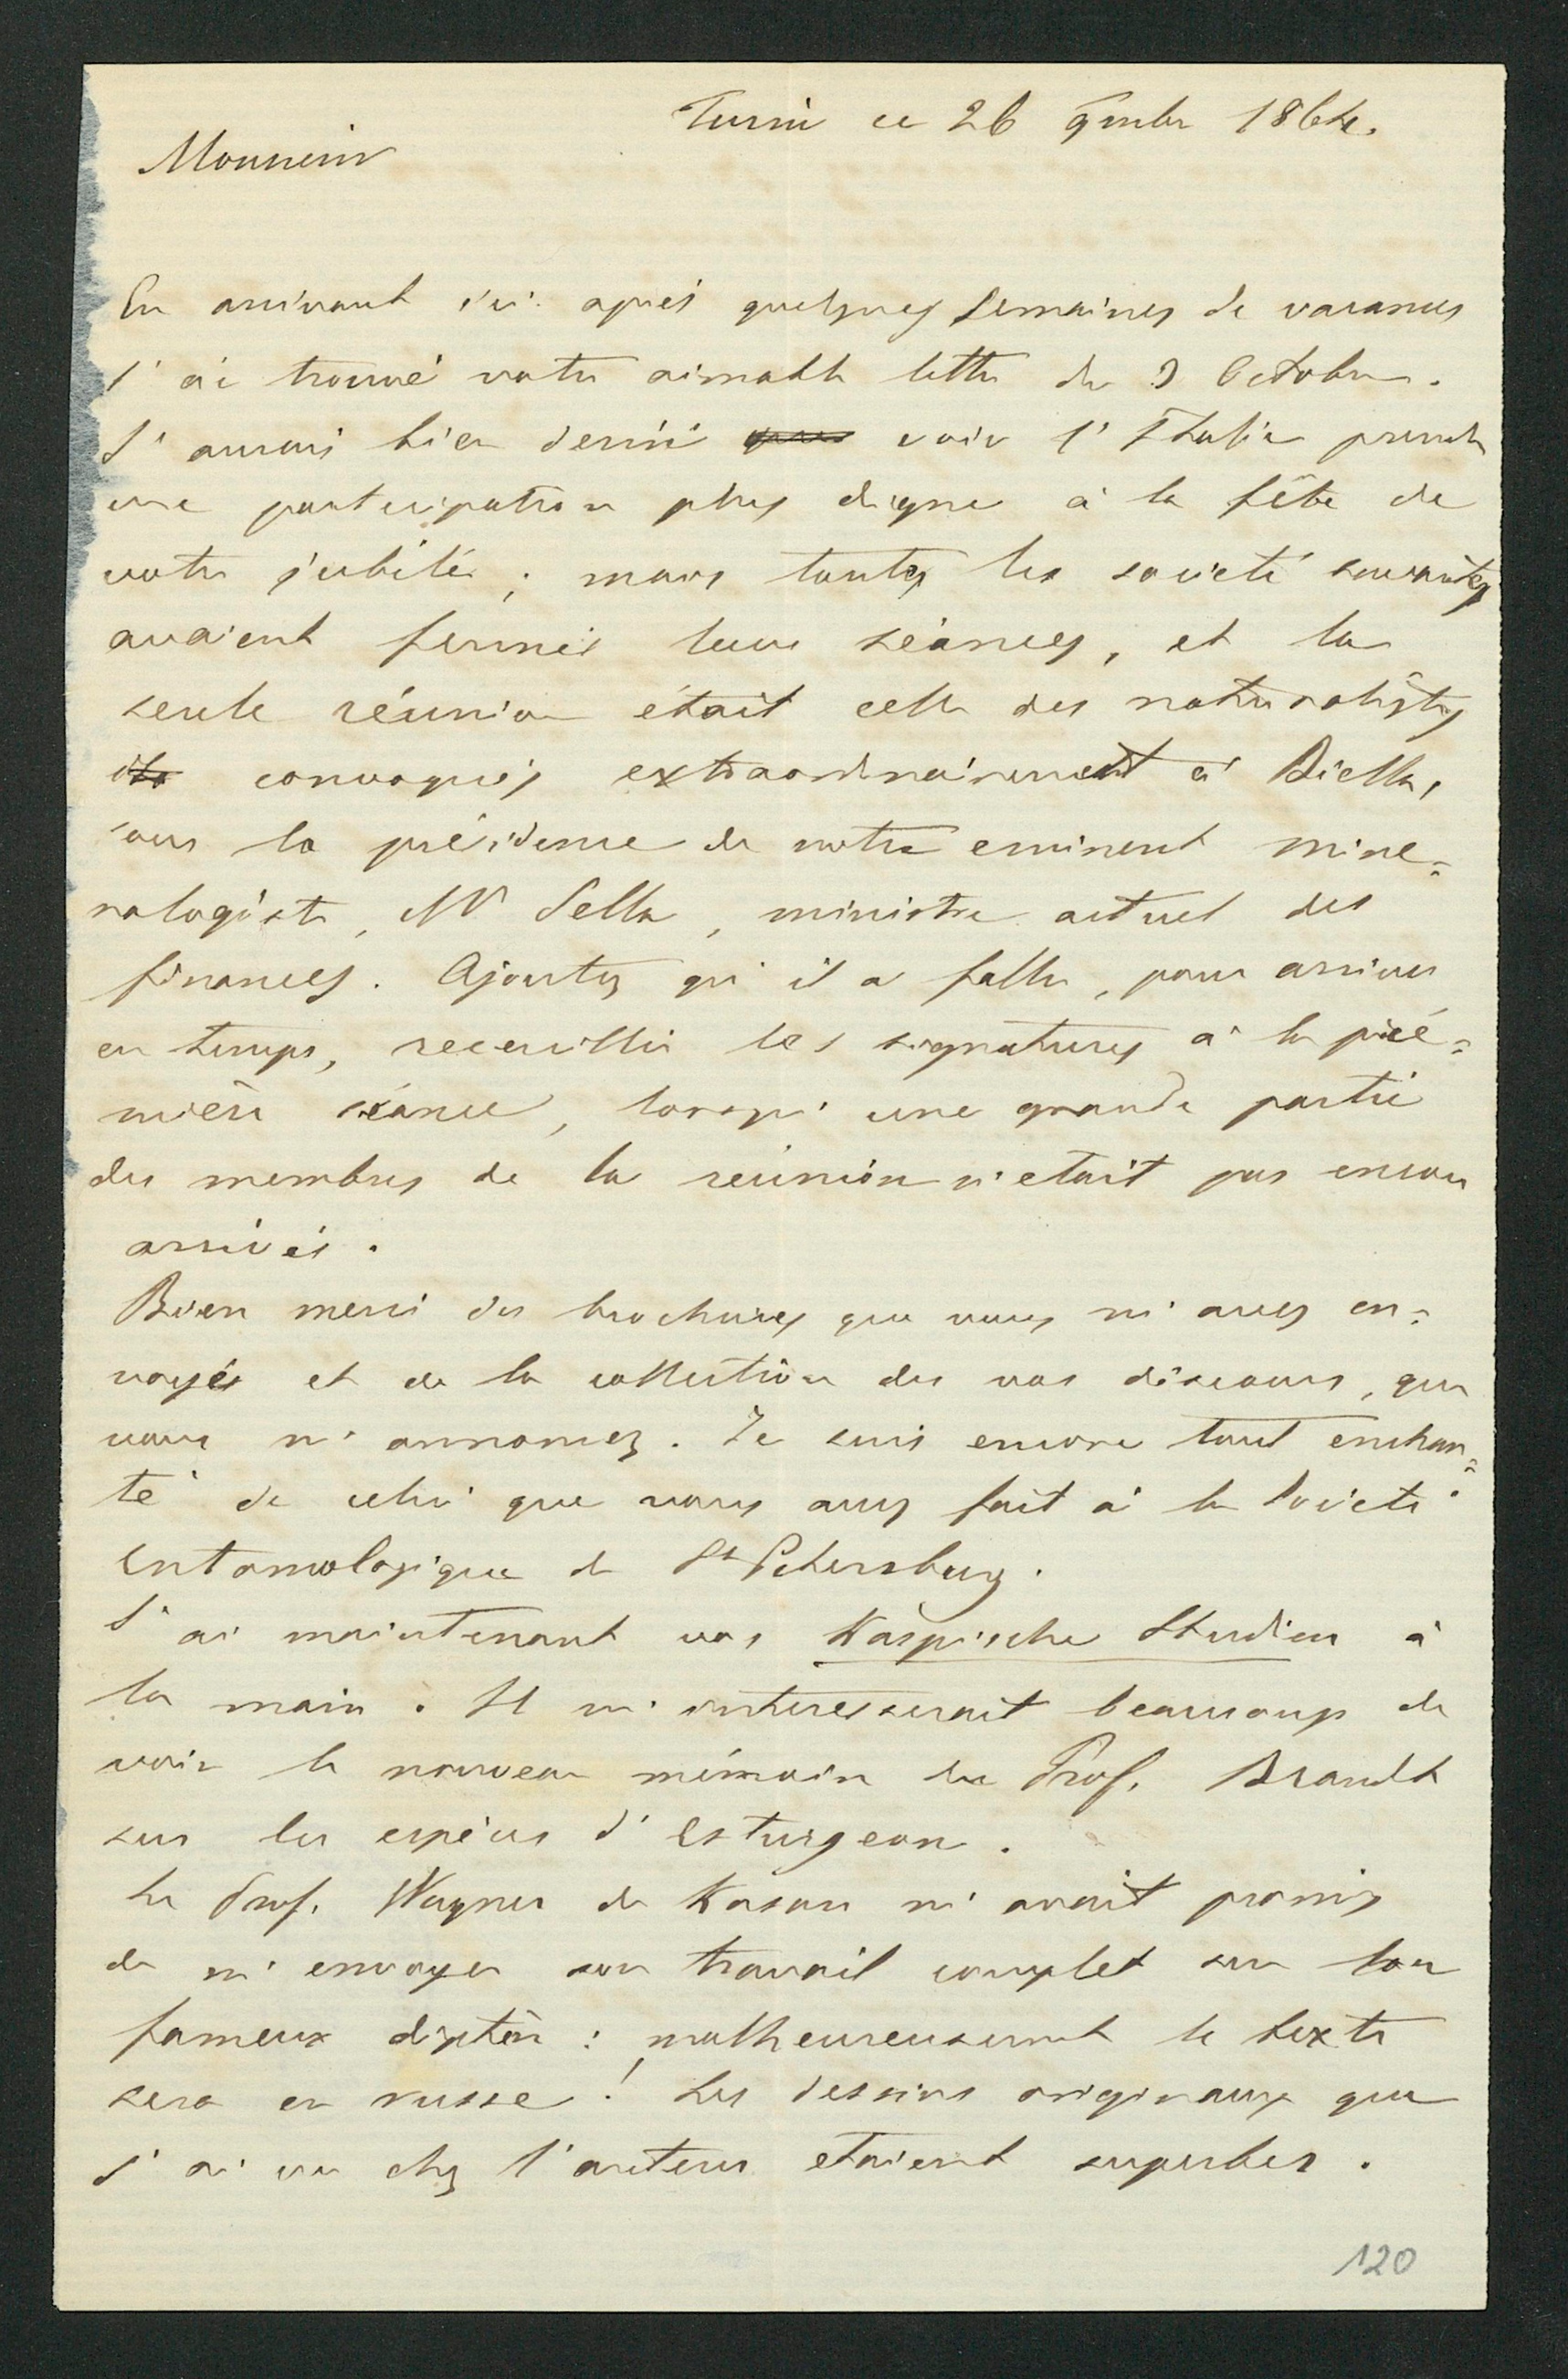 Turin ce 26 9mbre 1864.
Monsieur
En arrivant ici après quelques semaines de vacances
j' ai trouvé votre aimable lettre du 9 Octobre.
J' aurais bien desiré voir l' Italie prendre
une participation plus digne à la fête de
votre jubilée; mais toutes les societé savantes
avaient fermés leur séances, et la
seule réunion était celle des naturalistes
convoqués extraordinairement à Biella,
sous la présidence de notre eminent mine=
ralogiste, Mr Sella, ministre actuel des
finances. Ajoutez qu' il a fallu, pour arriver
en temps, receuillir les signatures à la pré=
mière séance, lorsqu' une grande partie
des membres de la reúnion n' etait pas encore
arrivés.
Bien merci des brochures que vous m' avez en=
voyés et de la collection des vos discours, que
vous m' annoncez. Je suis encore tout enchan=
té de celui que vous avez fait à la Societé
entomologique de St Petersburg.
J' ai maintenant vos Kaspische Studien à
la main. Il m' interesserait beaucoup de
voir le nouveau mémoire du Prof. Brandt
sur les espéces d' esturgeon.
Le Prof. Wagner de Kasan m' avait promis
de m' envoyer son travail complet sur son
fameux diptère: malheureusement le texte
sera en russe! Les dessins originaux que
j' ai vu chez l' auteur etaient superbes.
120